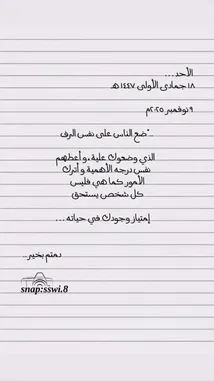 الأحد...
١٨ جمادى الأولى ١٤٤٧ هـ
٩ نوفمبر ٢٠٢٥م
.."ضع الناس على نفس الرف
الذي وضعوك علية، و أعطهم
نفس درجه الأهمية و أترك
الأمور كما هي فليس
كل شخص يستحق
إمتياز وجودك في حياته...
دمتم بخير..
snap:sswi.8